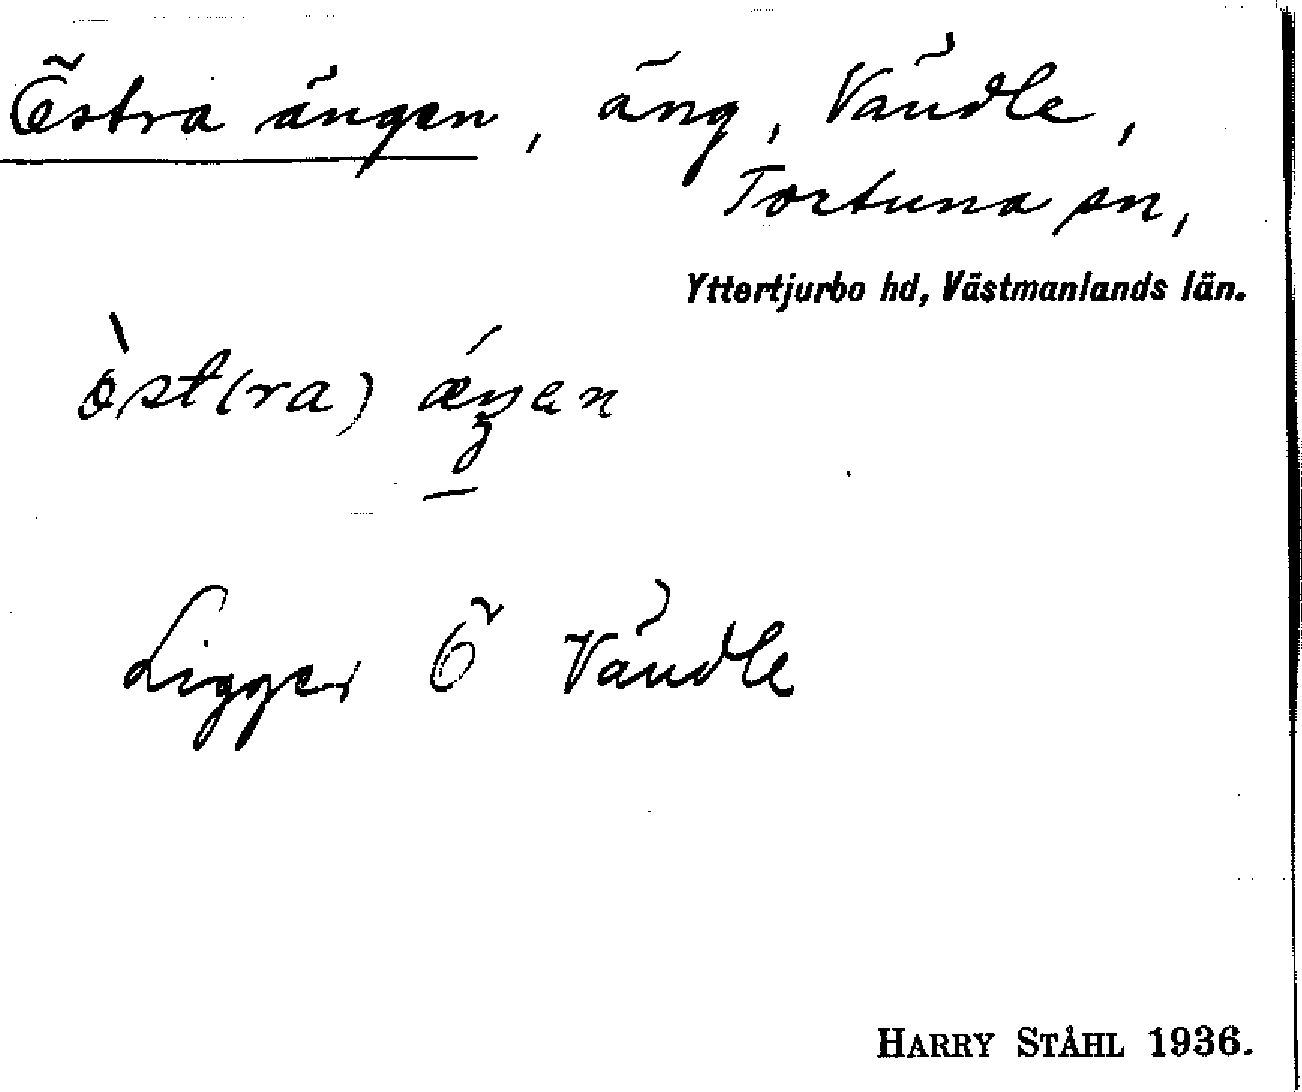 Östra ängen, äng, Vändle,
Tortuna sn,
Yttertjurbo hd, Västmanlands län.
òst(ra) ǽŋen
Ligger Ö Vändle
HARRY STÅHL 1936.